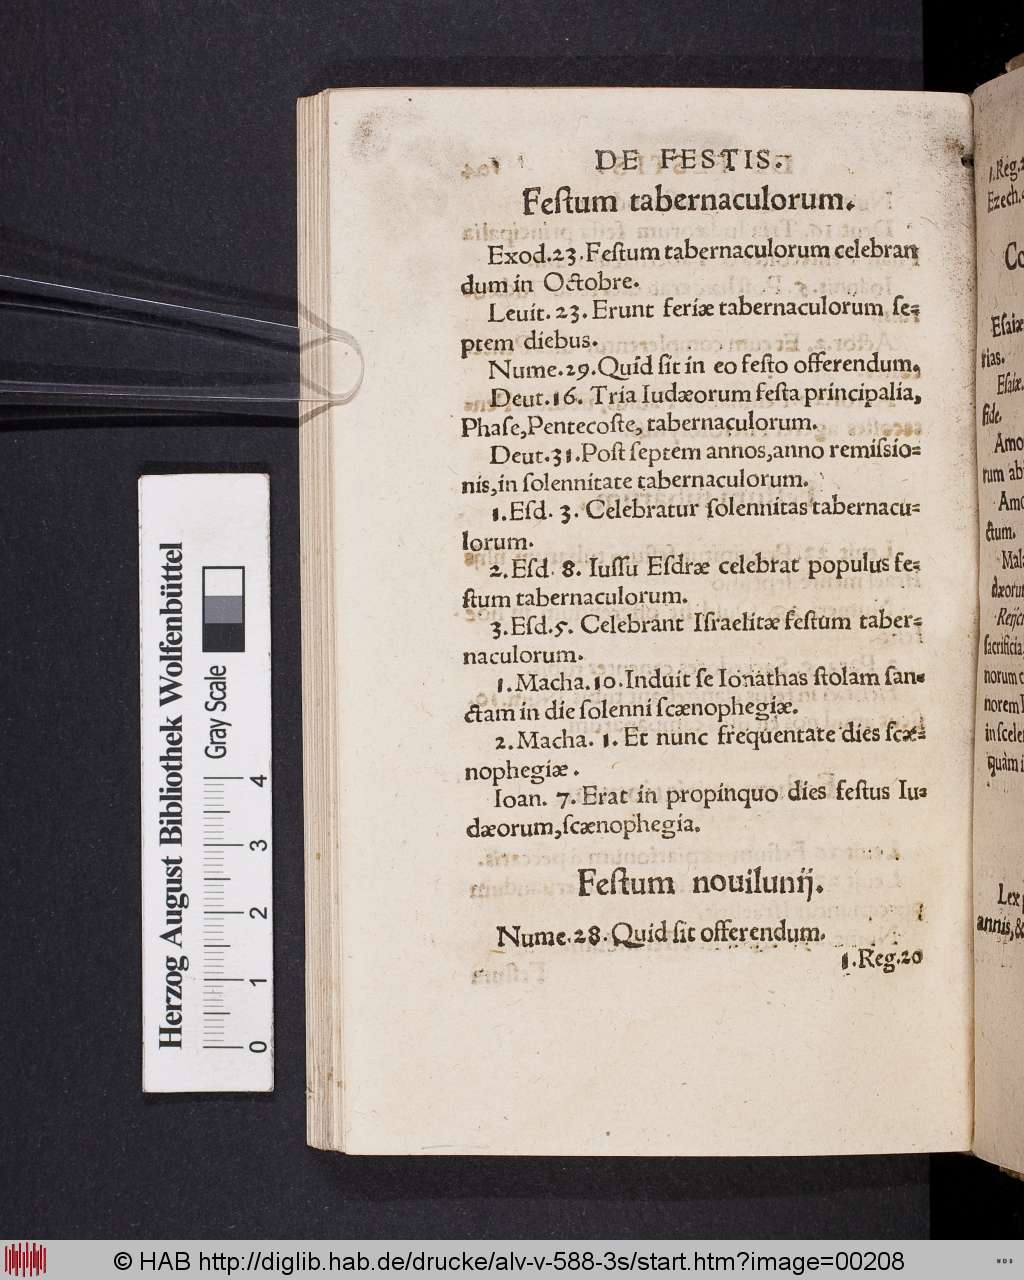 DE FESTIS.
Feſtum tabernaculorum.
Exod.23.Feſtum tabernaculorum celebran
dum in Octobre.
Leuit. 23. Erunt feriæ tabernaculorum ſe=
ptem diebus.
Nume.29.Quid ſit in eo feſto offerendum.
Deut.16. Tria Iudæorum feſta principalia,
Phaſe,Pentecoſte, tabernaculorum.
Deut.31.Poſt ſeptem annos,anno remiſsio=
nis,in ſolennitate tabernaculorum.
1.Eſd. 3. Celebratur ſolennitas tabernacu=
lorum.
2.Eſd. 8. Iuſſu Eſdræ celebrat populus fe=
ſtum tabernaculorum.
3.Eſd.5. Celebrant Iſraelitæ feſtum taber=
naculorum.
1.Macha.10.Induit ſe Ionathas ſtolam ſan=
ctam in die ſolenni ſcænophegiæ.
2.Macha. 1. Et nunc frequentate dies ſcæ=
nophegiæ.
Ioan. 7. Erat in propinquo dies feſtus Iu=
dæorum,ſcænophegia.
Feſtum nouilunij.
Nume.28.Quid ſit offerendum.
1.Reg.20
1.Reg.2
Ezech.
Co
Eſaiæ
rias.
Eſaiæ.
ſide.
Amo
rum ab
Amo
ctum.
Mala
dæorum
Reijci
ſacrificia
norum c
norem
in ſcele
quàm i
Lex p
annis,&
Herzog August Bibliothek Wolfenbüttel
Gray Scale
0 1 2 3 4
© HAB http://diglib.hab.de/drucke/alv-v-588-3s/start.htm?image=00208